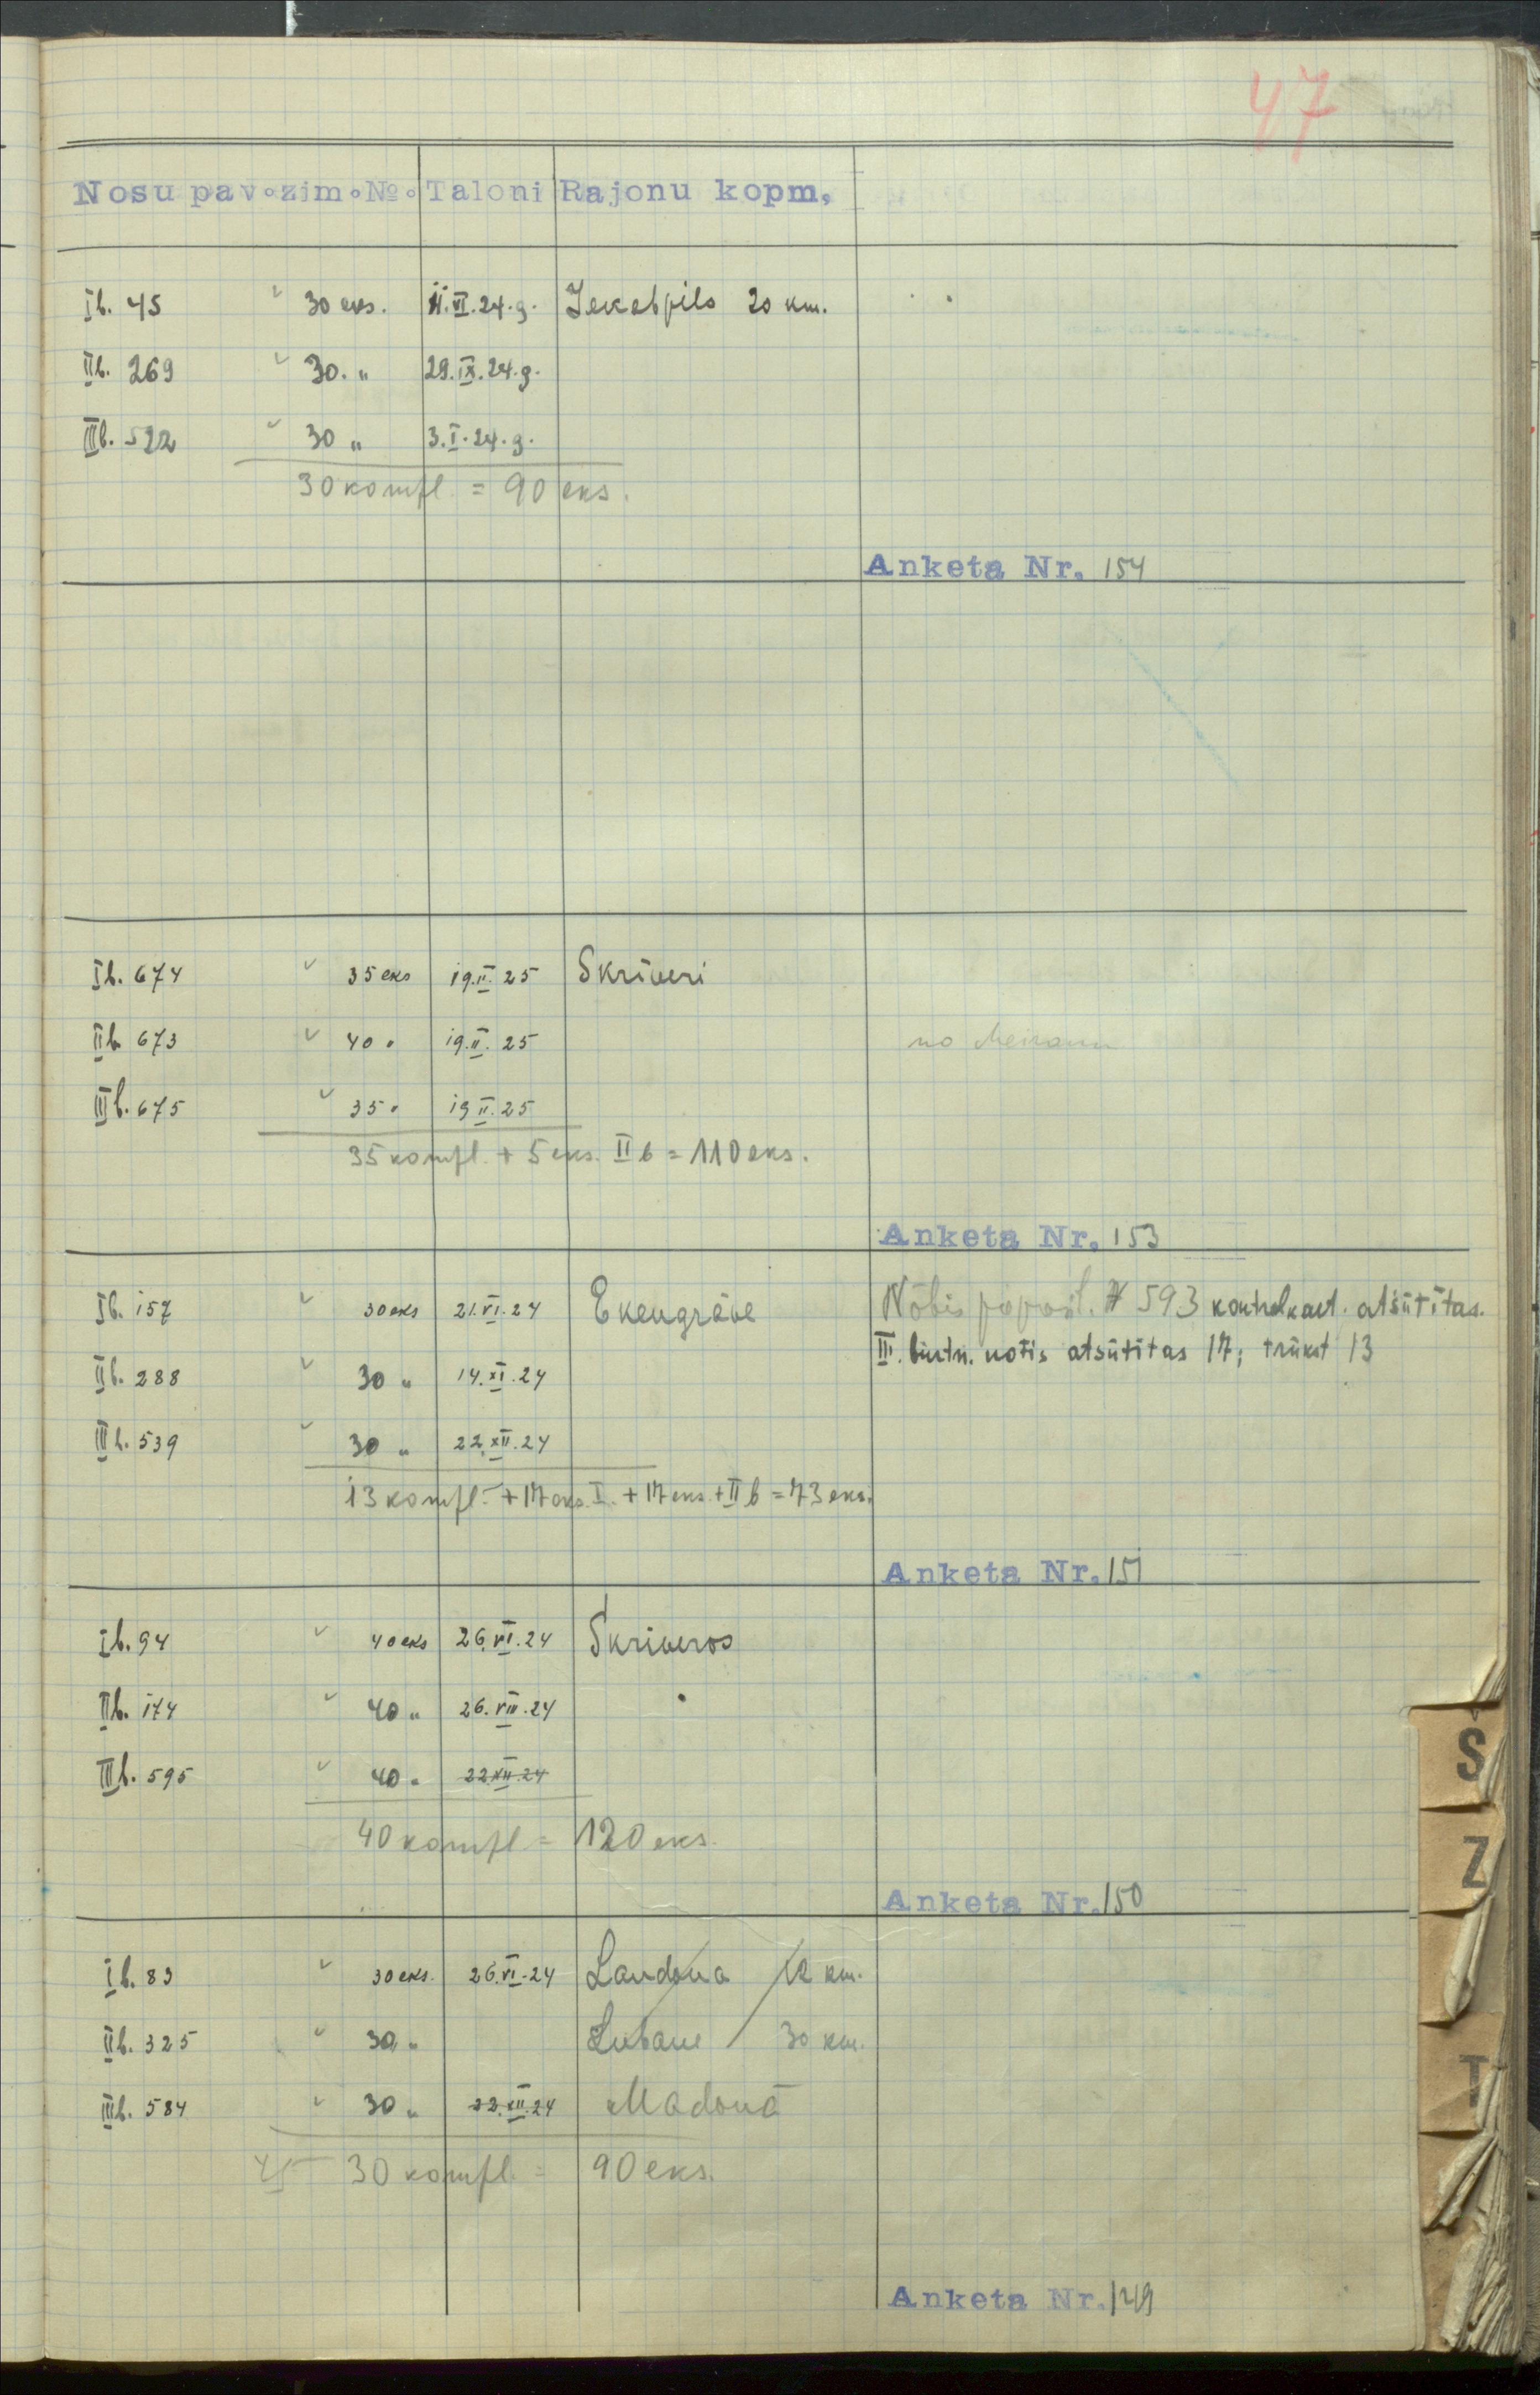 47
Nosu pav. zim. №. Taloni Rajonu kopm.
I b. 45 30 eks. 11.VI.24.g. Jekabpils 20 km.
II b. 269 30. " 29.IX.24.g.
III b. 522 30 " 3.I.24.g.
30 kompl. = 90 eks.
Anketa Nr. 154
I b. 674 35 eks 19.II.25 Skrīveri
II b 673 40 " 19.II.25
no
III b. 675 35 " 19 II.25
35 kompl. + 5 eks. II b = 110 eks.
Anketa Nr. 153
I b. 157 30 eks 21.VI.24 Ekengrāve Nōtis № 593 atsūtītas.
II b. 288 30 " 14.XI.24 III. burtn. notis atsūtītas 17; trūkst 13
III b. 539 30 " 22.XII.24
13 kompl. + 17 eks. I. + 17 eks. + II b = 73 eks.
Anketa Nr. 151
I b. 94 40 eks 26.VI.24 Skrīveros
II b. 174 40 " 26.VIII.24
III b. 595 40 " 22 XII.24
40 kompl = 120 eks.
Anketa Nr. 150
I b. 83 30 eks. 26.VI.24 Laudona 12 km.
II b. 325 30 " Lubane 30 km.
III b. 584 30 " 22.XII.24 Madonā
45 30 kompl. = 90 eks.
Anketa Nr. 149
S
Z
T